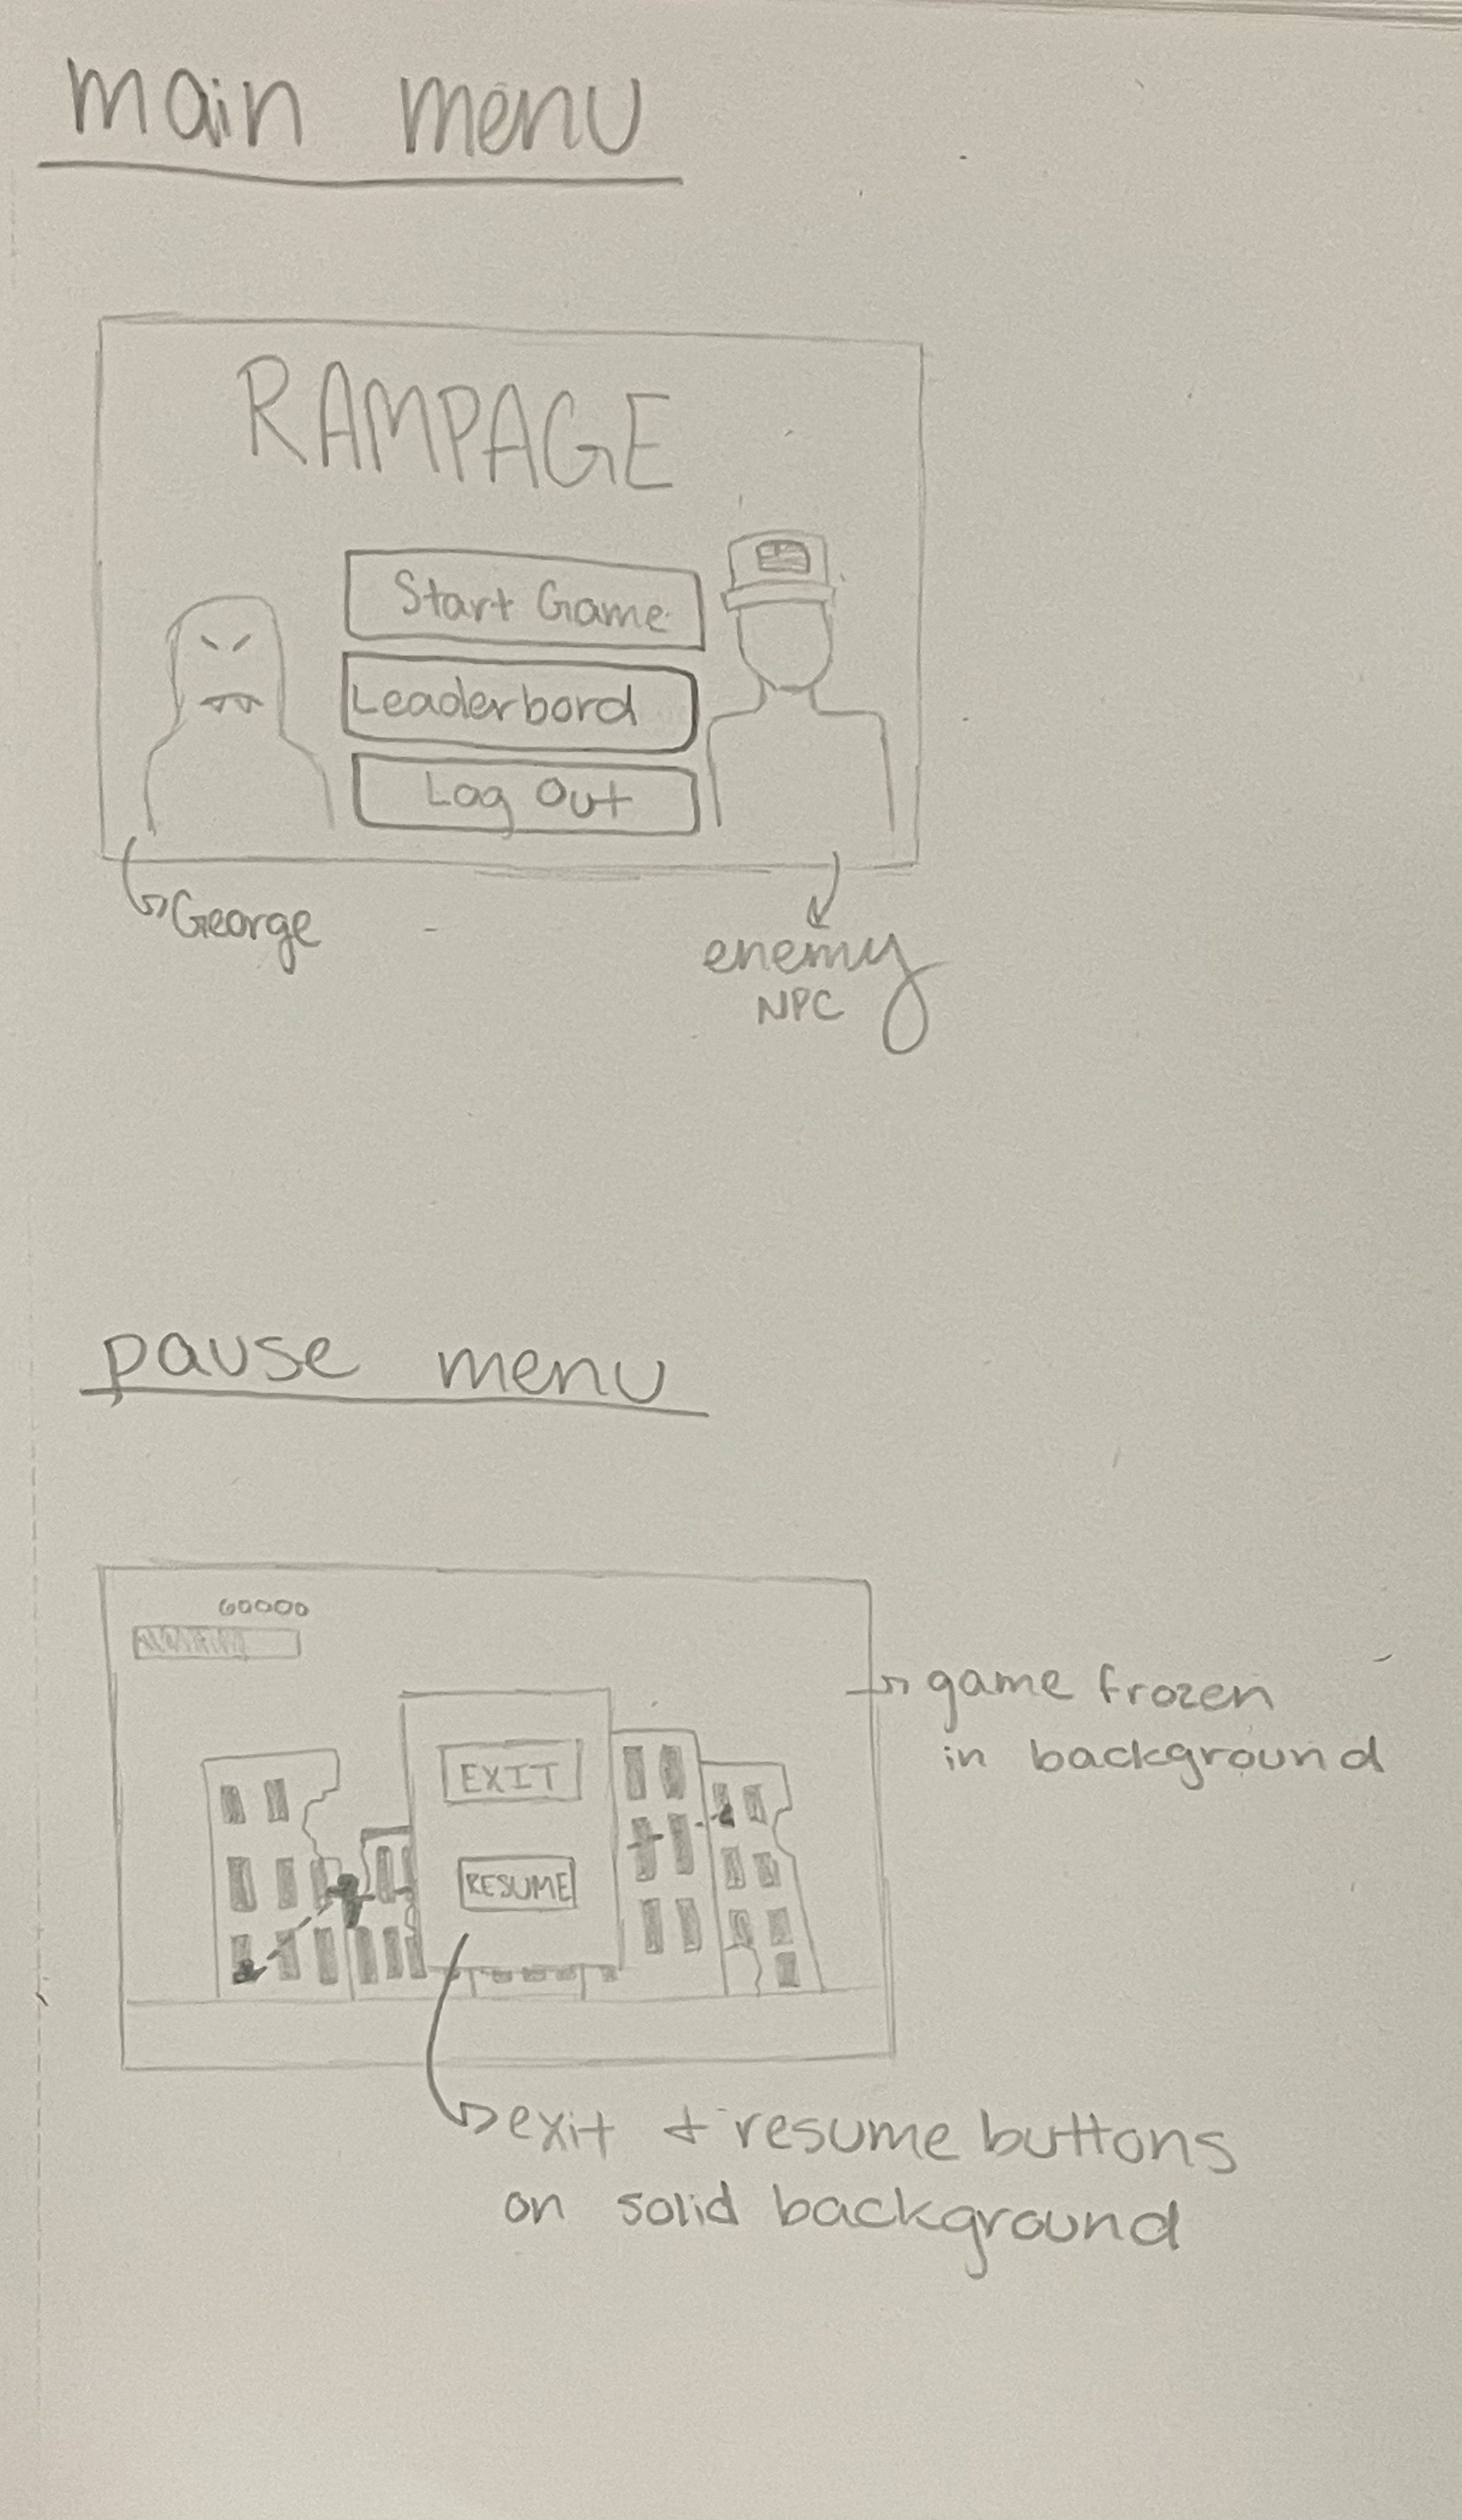 main menu
RAMPAGE
Start Game
Leaderbord
Log Out
George
enemy
NPC
pause menu
60000
EXIT
RESUME
game frozen
in background
exit + resume buttons
on solid background